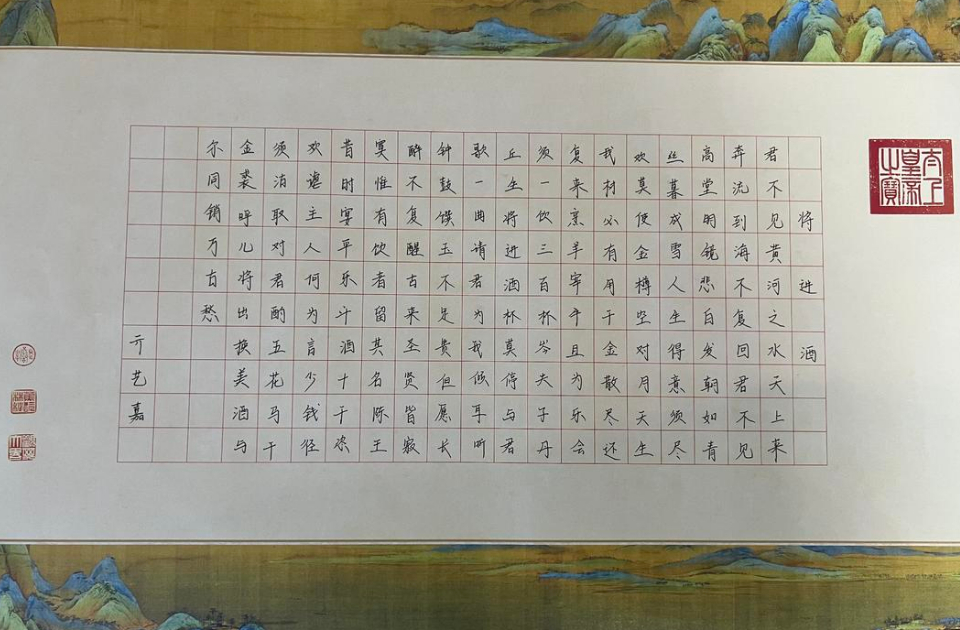 太上皇帝之宝
将进酒
君不见黄河之水天上来
奔流到海不复回君不见
高堂明镜悲白发朝如青
丝暮成雪人生得意须尽
欢莫使金樽空对月天生
我材必有用千金散尽还
复来烹羊宰牛且为乐会
须一饮三百杯岑夫子丹
丘生将进酒杯莫停与君
歌一曲请君为我倾耳听
钟鼓馔玉不足贵但愿长
醉不复醒古来圣贤皆寂
寞惟有饮者留其名陈王
昔时宴平乐斗酒十千恣
欢谑主人何为言少钱径
须沽取对君酌五花马千
金裘呼儿将出换美酒与
尔同销万古愁
亓艺嘉